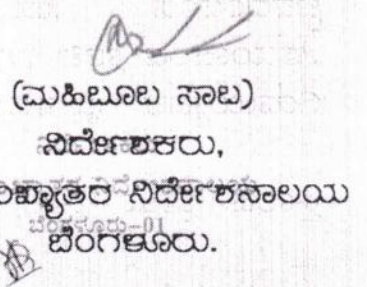 (ಮಹಿಬೂಬ ಸಾಬ)
ನಿರ್ದೇಶಕರು,
ನಿರ್ದೇಶನಾಲಯ
ಬೆಂಗಳೂರು-01
ಬೆಂಗಳೂರು.